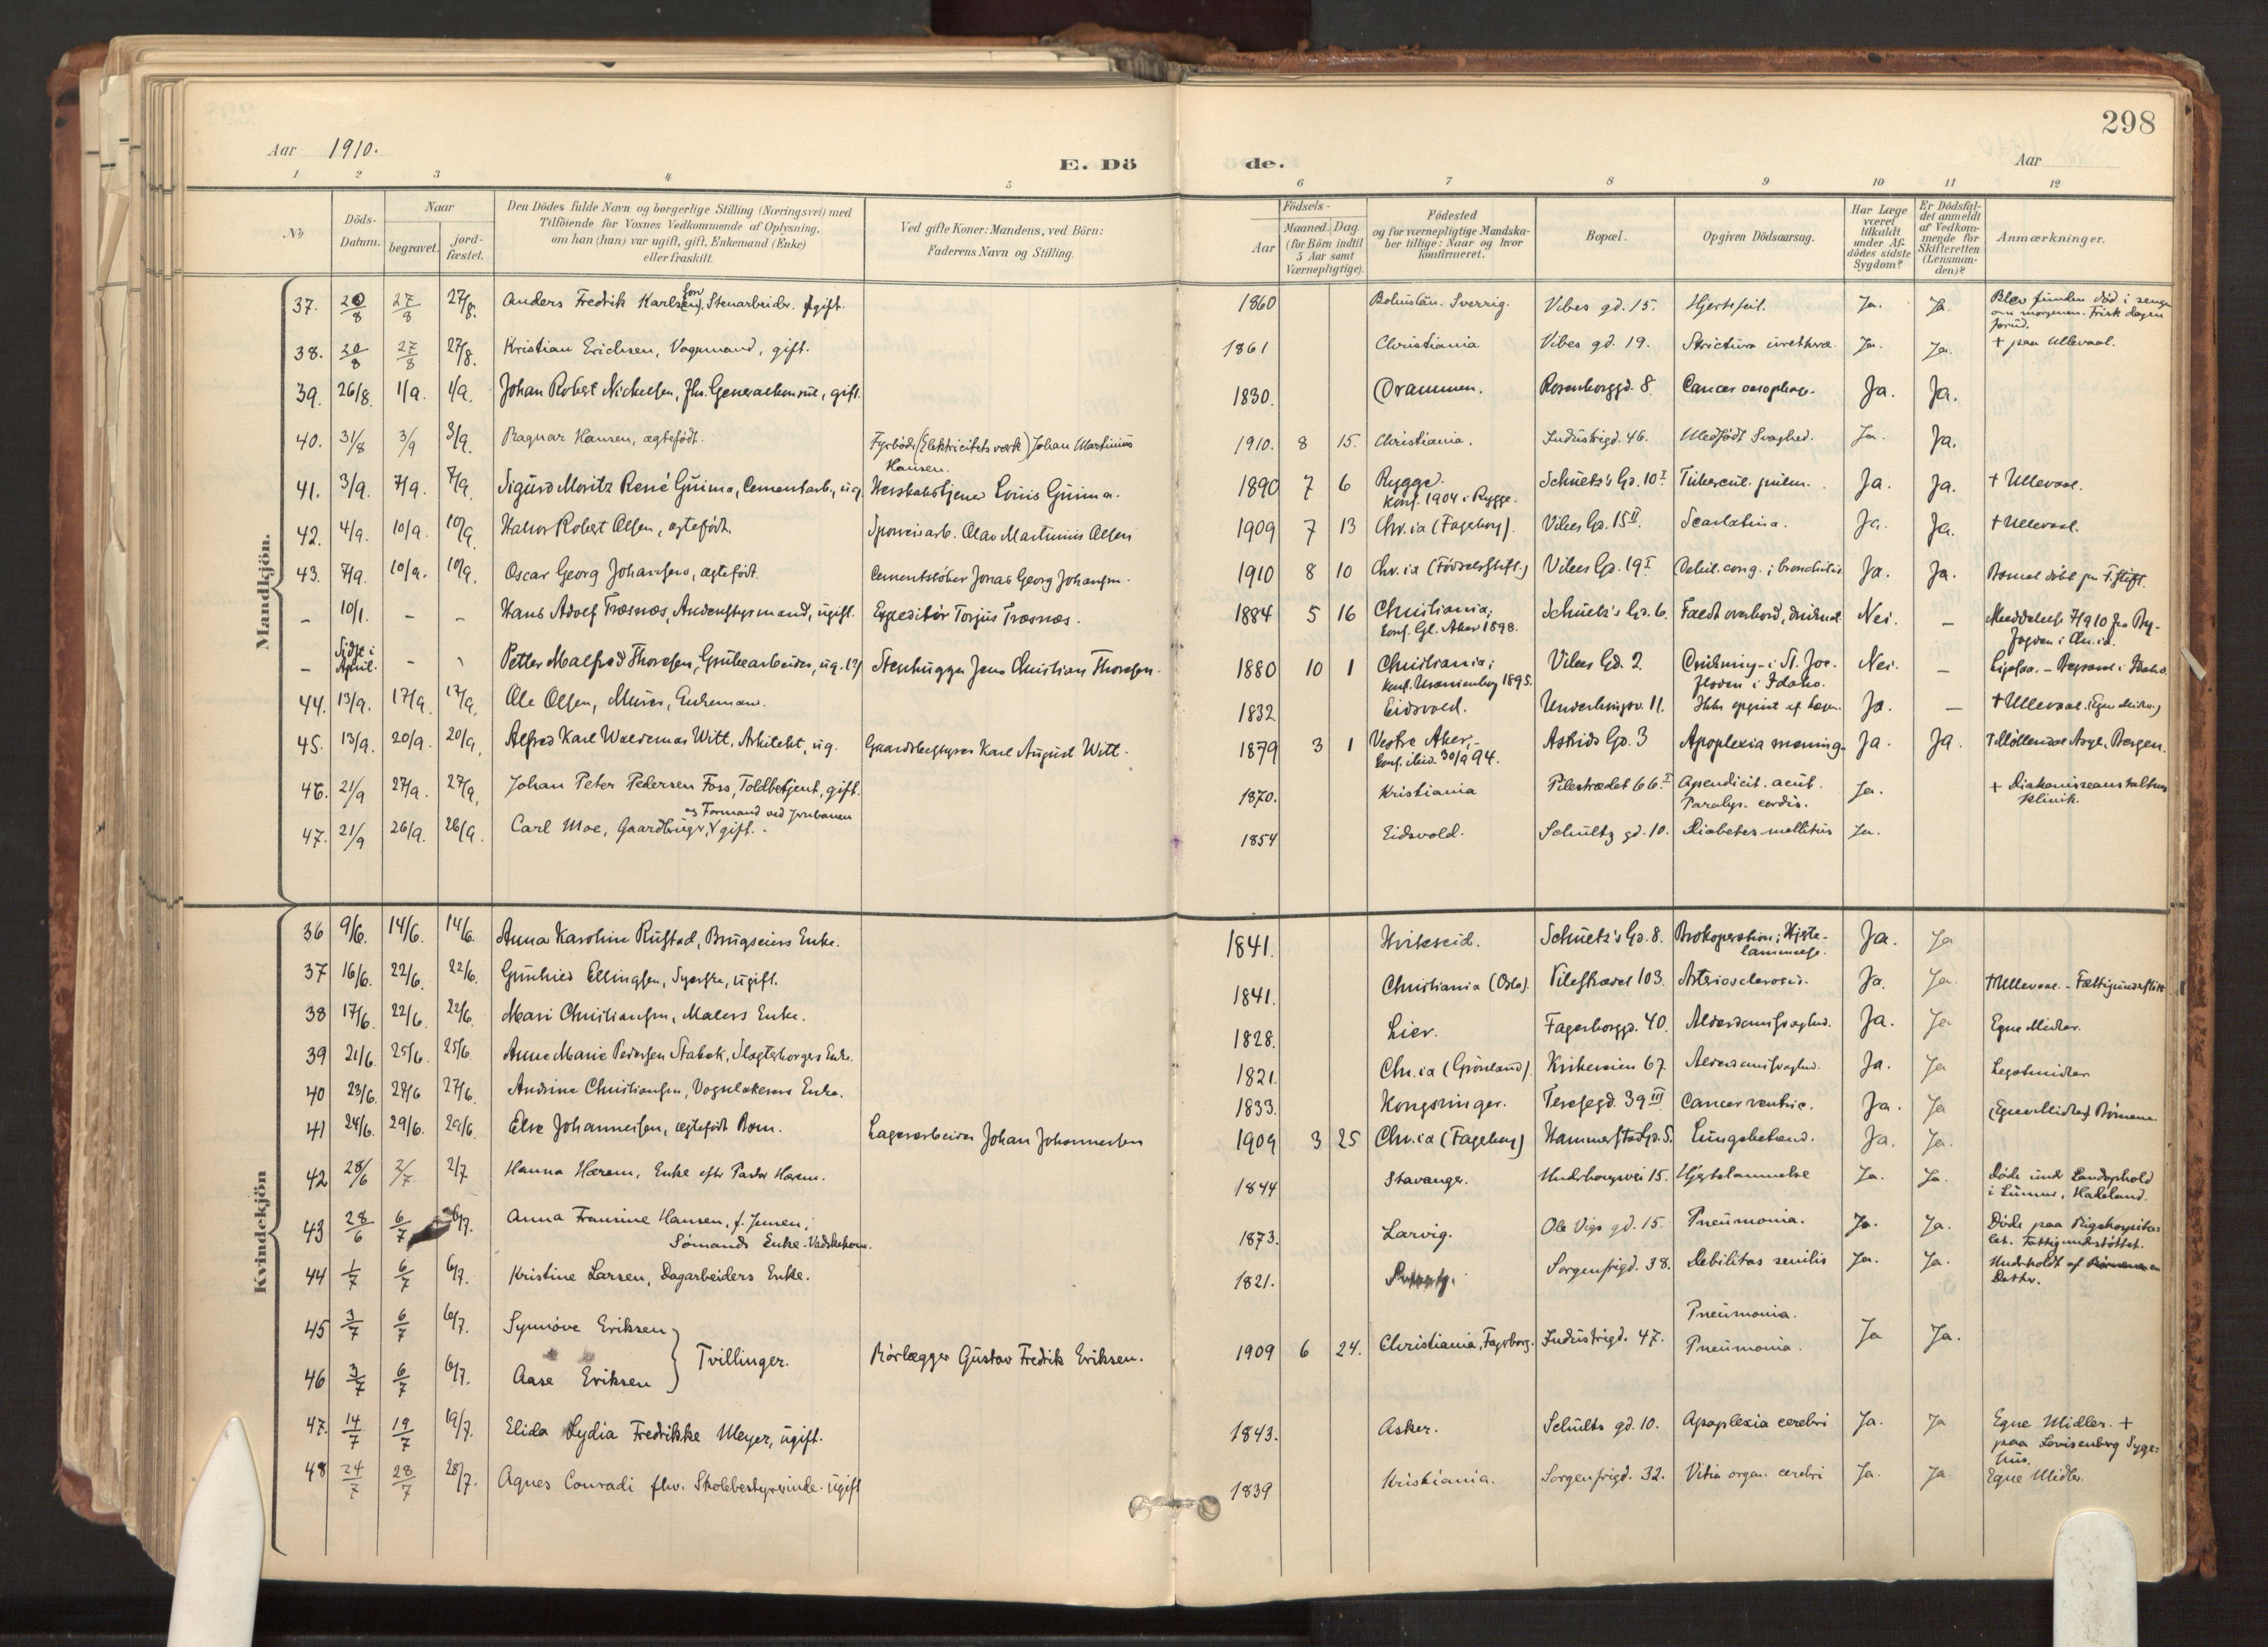 298
Aar 1910.
E. Dö de.
Aar
1 2 3 4 5 6 7 8 9 10 11 12
No
Döds-Datum.
Naar
begravet.
jord-fæstet.
Den Dödes fulde Navn og borgerlige Stilling (Næringsvei) med
Tilföiende for Voxnes Vedkommende af Oplysning,
om han (hun) var ugift, gift, Enkemand (Enke)
eller fraskilt.
Ved gifte Koner: Mandens, ved Börn:
Faderens Navn og Stilling.
Födsels-
Aar
Maaned. Dag.
(for Börn indtil
5 Aar samt
Værnepligtige).
Födested
og for værnepligtige Mandska-
ber tillige: Naar og hvor
konfirmeret.
Bopæl.
Opgiven Dödsaarsag.
Har Læge
været
tilkaldt
under Af-
dödes sidste
Sygdom?
Er Dödsfal-
det anmeldt
af Vedkom-
mende for
Skifteretten
(Lensman-
den)?
Anmærkninger.
Mandkjön.
37. 20/8 27/8 27/8. Anders Fredrik Karlsen, Stenarbeider. gift. 1860 Bohuslän. Sverrig. Vibes gd. 15. Hjertefeil. Ja. Ja. Blev funden död i sengen
om morgenen. Frisk dagen
forud.
38. 20/8 27/8 27/8. Kristian Erichsen, Vognmand, gift. 1861 Christiania Vibes gd. 19. Strictura urethra. Ja. Ja. + paa Ullevaal.
39. 26/8. 1/9. 1/9. Johan Robert Nickelsen, fhv. Generalkonsul, gift. 1830. Drammen. Rosenborggd. 8. Cancer oesophag. Ja. Ja.
40. 31/8 3/9 3/9. Ragnar Hansen, ægtefödt. Fyrböder (Elektricitetsverk) Johan Martinius
Hansen. 1910. 8 15. Christiania. Industrigd. 46. Medfödt Svaghed. Ja. Ja.
41. 3/9. 7/9. 7/9. Sigurd Moritz René Guima, Cementarb., ug. Herskabstjener Louis Guima. 1890 7 6 Rygge.
Konf. 1904 i Rygge. Schultz's Gd. 10 I Tubercul. pulm. Ja. Ja. + Ullevaal.
42. 4/9. 10/9. 10/9. Robert Olsen, ægtefödt. Sporveisarb. Olav Martinius Olsen 1909 7 13 Chr.ia (Fagerborg). Vibes Gd. 15 II. Scarlatina. Ja. Ja. + Ullevaal.
43. 7/9. 10/9. 10/9. Oscar Georg Johansen, ægtefödt. Cementstöber Jonas Georg Johansen. 1910 8 10 Chr.ia (Födselsstift.) Vibes Gd. 19 I Debil. cong.; bronchitis Ja. Ja. Barnet döbt paa F. stift.
– 10/1. – – Hans Adolf Træsnæs, Andenstyrmand, ugift. Expeditör Torjus Træsnæs. 1884 5 16 Christiania;
Konf. Gl. Aker 1898. Schultz's Gd. 6. Faldt overbord, druknet. Nei. – Meddelelse 7/9 10 fra By-
fogden i Chr.ia.
– Sidst i
April. – – Petter Malfred Thoresen, Grubearbeider, ug. (?) Stenhugger Jens Christian Thoresen. 1880 10 1 Christiania;
Konf. Uranienborg 1895. Vibes Gd. 2. Drukning i St. Joe-
floden i Idaho. Nei. –
44. 13/9. 17/9. 17/9. Ole Olsen, Murer, Enkemand. 1832 Eidsvold. Underhaugsv. 11. Ikke opgivet af Lægen. Ja. – + Ullevaal. (Egne Midler.)
45. 13/9. 20/9. 20/9. Alfred Karl Waldemar Witt, Arkitekt, ug. Gaardsbestyrer Karl August Witt. 1879 3 1 Vestre Aker,
Konf. ibid. 30/9 94. Astrids Gd. 3 Apoplexia mening. Ja. Ja. + Möllendal Asyl, Bergen.
46. 21/9 27/9. 27/9. Johan Peter Pedersen Foss, Toldbetjent, gift. 1870. Kristiania Pilestrædet 66 I Apendicit. acut.
Paralys. cordis. Ja. + Diakonisseanstaltens
Klinik.
og Formand ved Jernbanen
47. 21/9 26/9. 26/9. Carl Moe, Gaardbruger, gift. 1854 Eidsvold. Schultz gd. 10. Diabetes mellitus Ja.
Kvindekjön
36 9/6. 14/6. 14/6. Anna Karoline Rustad, Brugseiers Enke. 1841. Hviteseid. Schultz's Gd. 8. Brokoperation; Hjerte-
lammelse. Ja. Ja
37 16/6. 22/6. 22/6. Gunhild Ellingsen, Syerske, ugift. 1841. Christiania (Oslo). Pilestrædet 103. Arteriosclerosis. Ja. Ja. + Ullevaal. – Fattigunderstött
38 17/6. 22/6. 22/6. Mari Christiansen, Malers Enke. 1828. Lier. Fagerborggd. 40. Alderdomssvaghed. Ja. Ja Egne Midler.
39 21/6. 25/6. 25/6. Anne Marie Pedersen Stabæk, Slagterborgers Enke. 1821. Chr.ia (Grönland). Kirkeveien 67. Alderdomssvaghed. Ja. Ja Legatmidler
40 23/6. 27/6 27/6. Andrine Christiansen, Vognlakerers Enke. 1833. Kongsvinger. Teresegd. 39 III Cancer ventric. Ja. Ja (Egne Midler) Börnene
41 24/6. 29/6. 29/6 Else Johannessen, ægtefödt Barn. Lagerarbeider Johan Johannessen 1909 3 25 Chr.ia (Fagerborg) Hammerstadgd. 5. Lungebetænd. Ja. Ja.
42 28/6 2/7 2/7 Hanna Hærem, Enke efter Pastor Hærem. 1844 Stavanger. Underhaugsvei 15. Hjertelammelse Ja. Ja. Döde under Landophold
i Lunner, Hadeland.
43 28/6 6/7 6/7. Anna Fransine Hansen, f. Jensen;
Sömands Enke. Vadskekone. 1873. Larvig. Ole Vigs gd. 15. Pneumonia. Ja. Ja. Döde paa Rigshospita-
let. Fattigunderstöttet.
44 1/7 6/7 6/7. Kristine Larsen, Dagarbeiders Enke. 1821. Sorgenfrigd. 38. Debilitas senilis Ja. Ja. Underholdt af en
Datter.
45 3/7 6/7 6/7. Synnöve Eriksen Pneumonia.
Tvillinger. Rörlægger Gustav Fredrik Eriksen. 1909 6 24. Christiania, Fagerborg. Industrigd. 47. Ja Ja.
46 3/7 6/7 6/7. Aase Eriksen Pneumonia.
47. 14/7 19/7 19/7. Elida Lydia Fredrikke Meyer, ugift. 1843. Asker. Schultz gd. 10. Apoplexia cerebri Ja. Ja Egne Midler. +
paa Lovisenberg Syge-
hus.
48 24/7 28/7 28/7. Agnes Conradi fhv. Skolebestyrerinde. ugift 1839 Kristiania. Sorgenfrigd. 32. Vitia organ. cerebri Ja. Ja. Egne Midler.